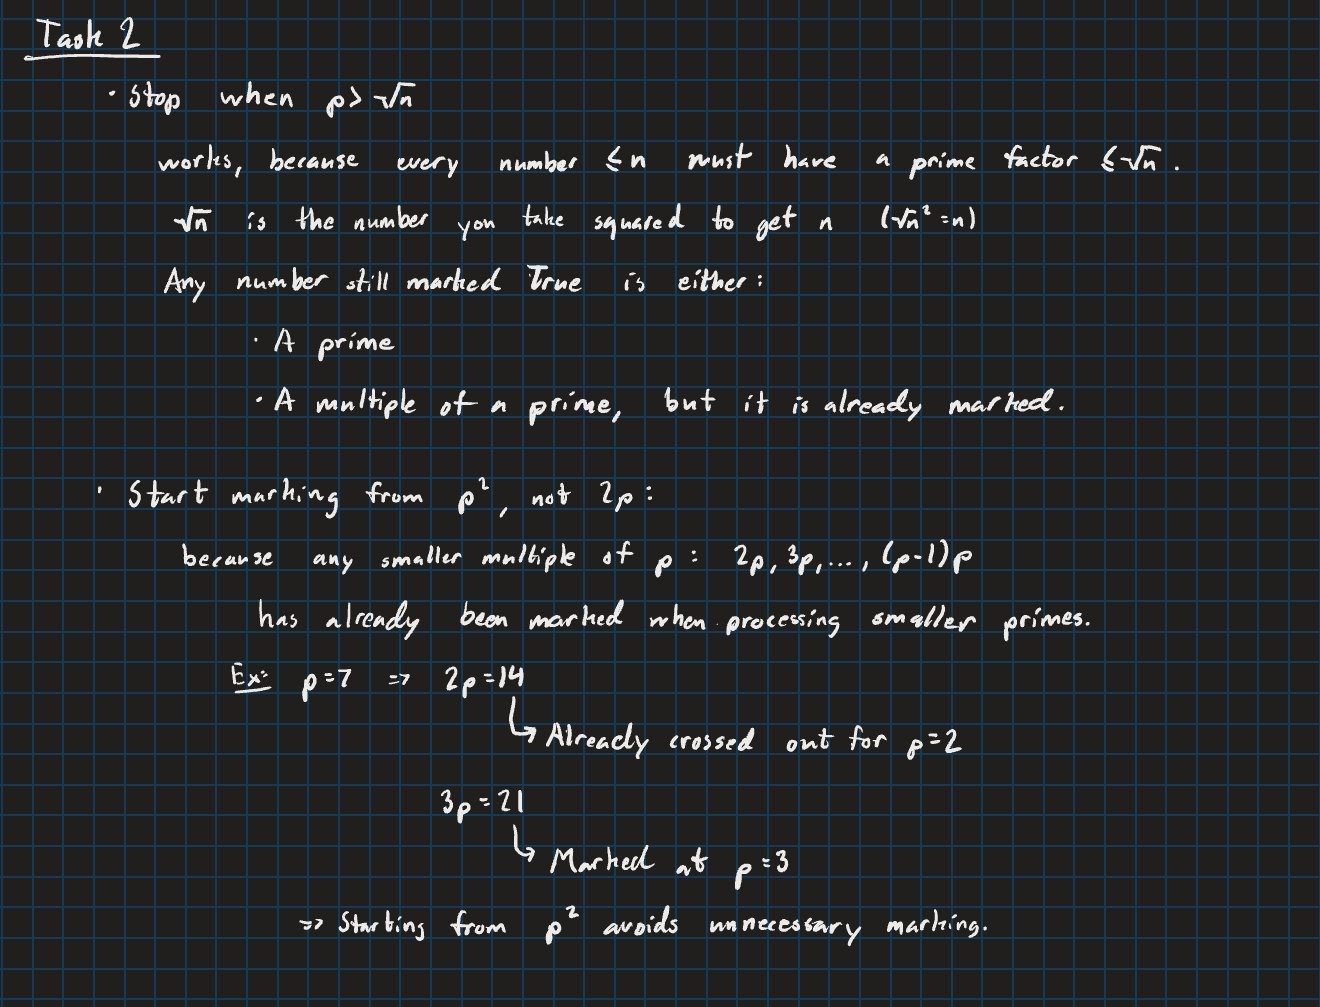 Task 2
· Stop when p > √n
works, because every number ≤ n must have a prime factor ≤ √n.
√n is the number you take squared to get n (√n² = n)
Any number still marked True is either:
· A prime
· A multiple of a prime, but it is already marked.
· Start marking from p², not 2p:
because any smaller multiple of p: 2p, 3p, ..., (p-1)p
has already been marked when processing smaller primes.
Ex: p=7 => 2p=14
↳ Already crossed out for p=2
3p=21
↳ Marked at p=3
=> Starting from p² avoids unnecessary marking.